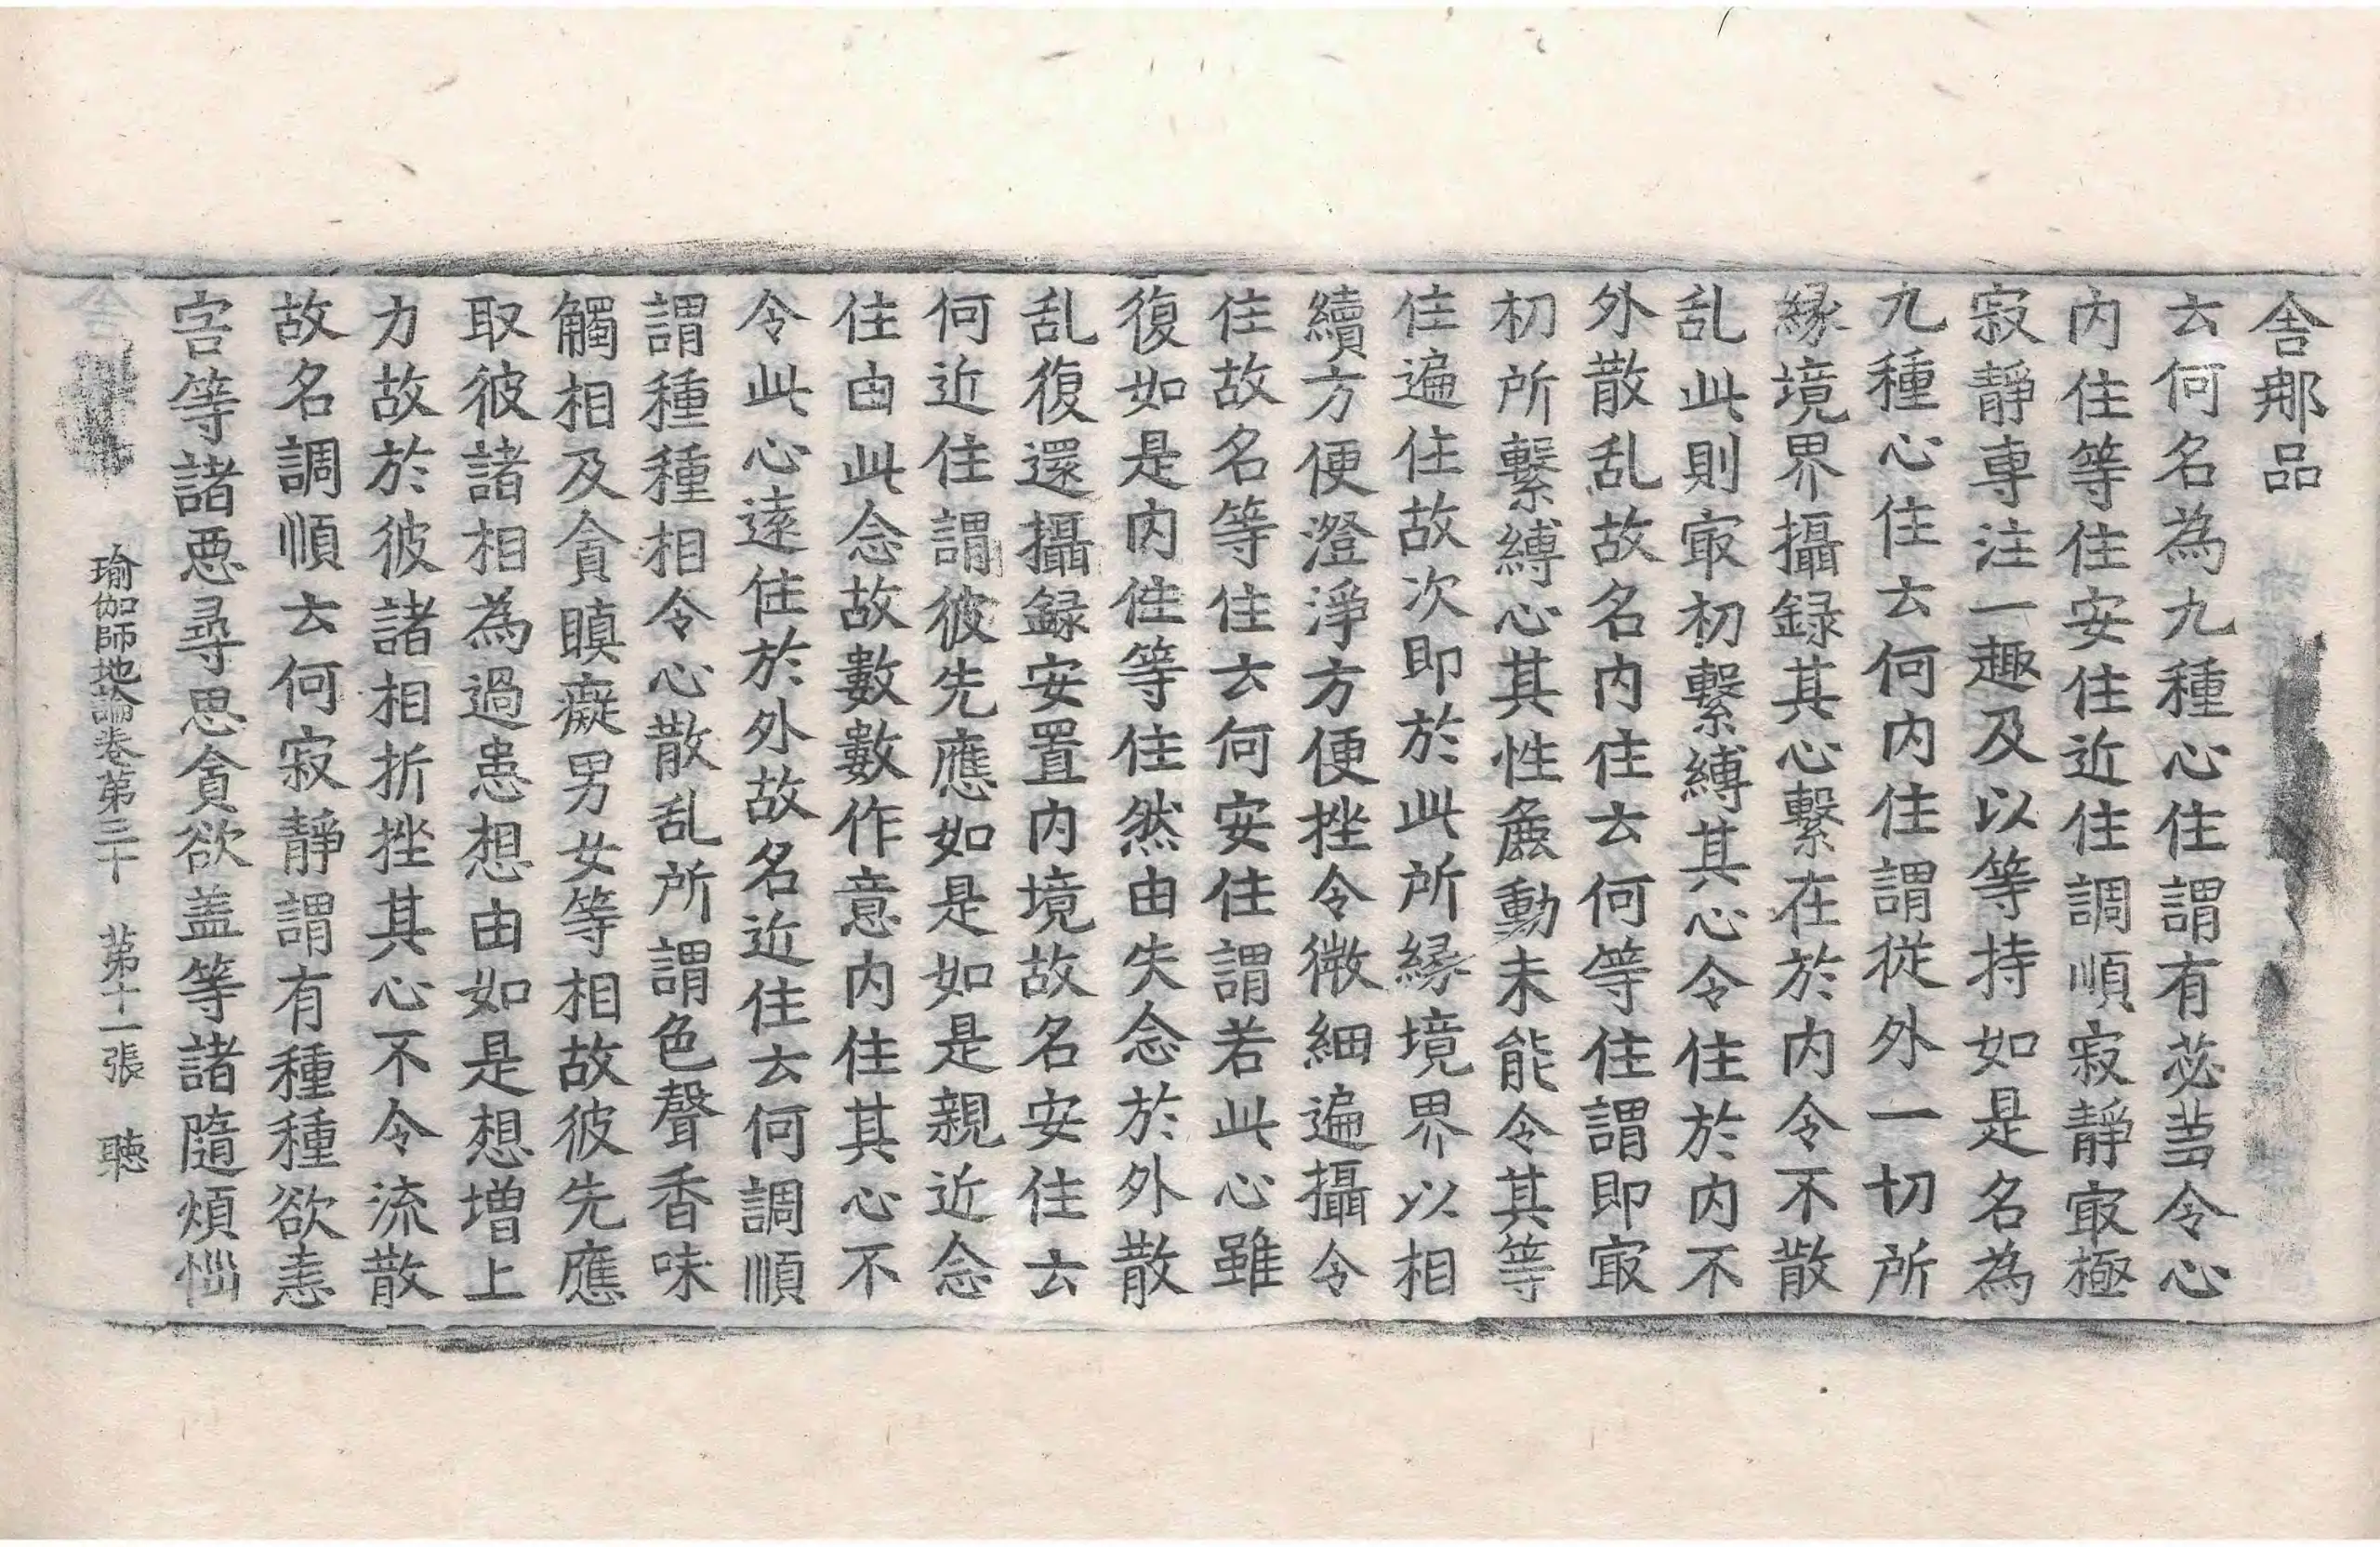 舎𨙻品
云何名為九種心住謂有苾芻令心
内住等住安住近住調順寂靜㝡極
寂靜専注一趣及以等持如是名為
九種心住云何内住謂從外一切所
縁境界攝録其心繫在於内令不散
乱此則㝡初繫縛其心令住於内不
外散乱故名内住云何等住謂即㝡
初所繫縛心其性麁動未能令其等
住遍住故次即於此所縁境界以相
續方便澄淨方便挫令微細遍攝令
住故名等住云何安住謂若此心雖
復如是内住等住然由失念於外散
乱復還攝録安置内境故名安住云
何近住謂彼先應如是如是親近念
住由此念故數數作意内住其心不
令此心逺住於外故名近住云何調順
謂種種相令心散乱所謂色聲香味
觸相及貪瞋癡男女等相故彼先應
取彼諸相為過患想由如是想增上
力故於彼諸相折挫其心不令流散
故名調順云何寂靜謂有種種欲恚
害等諸惡尋思貪欲盖等諸隨煩惱
瑜伽師地論卷第三十　第十一張　聴